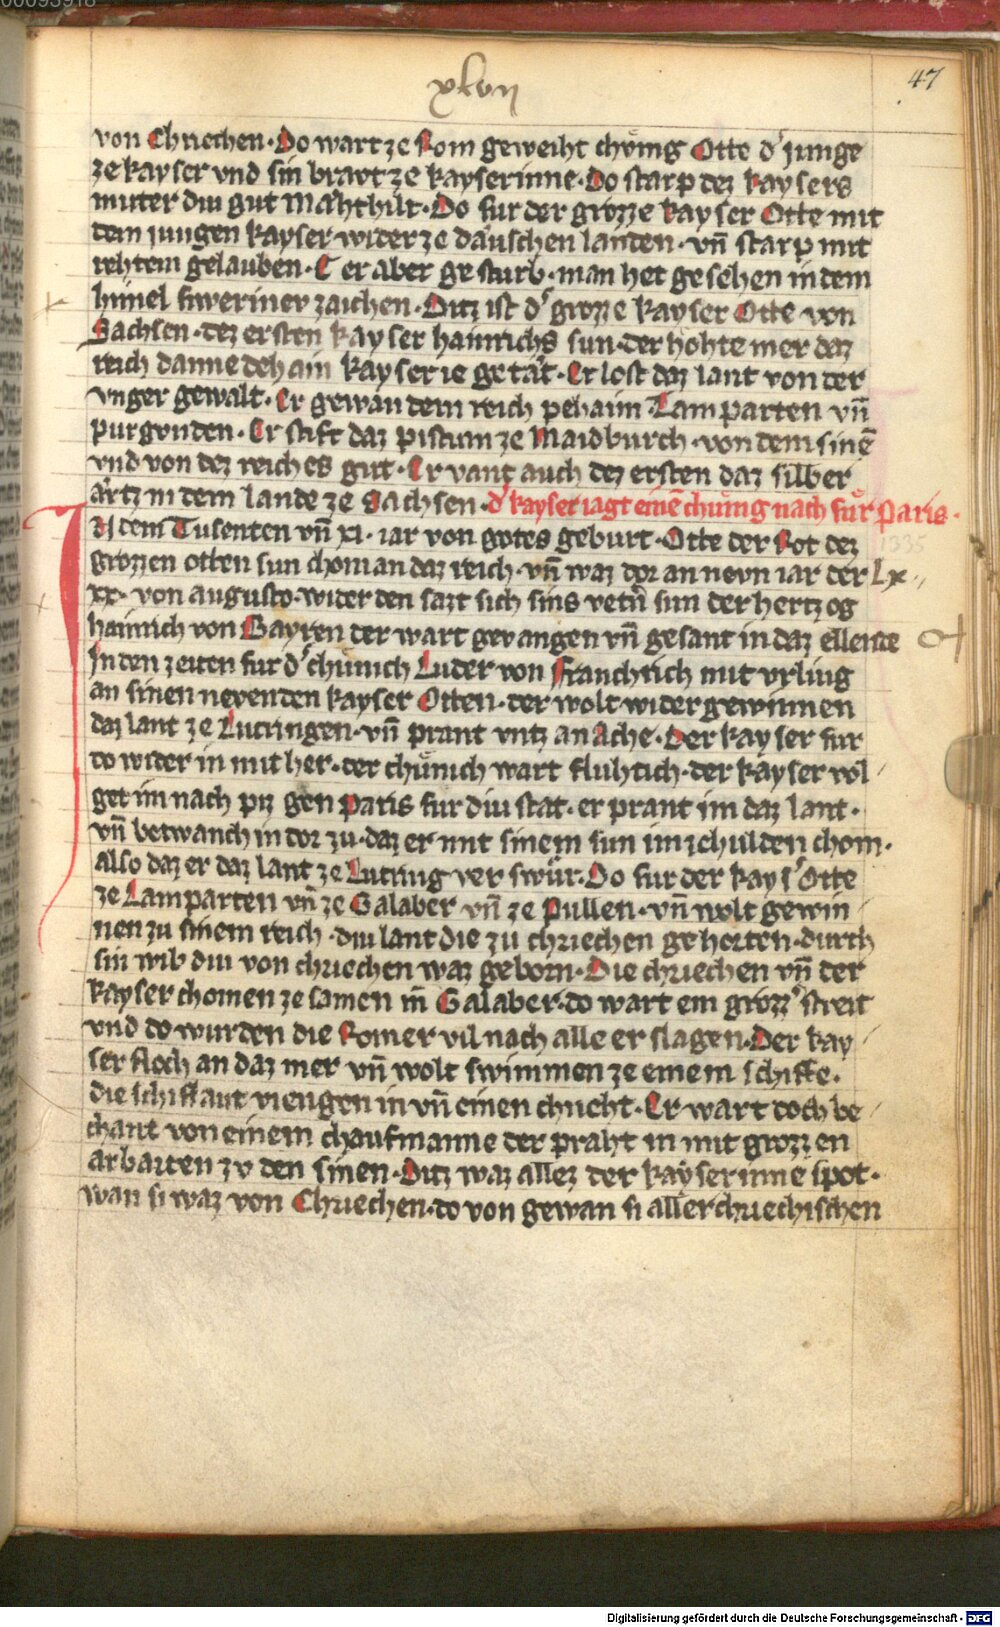 00093918
xlvii
47
von Chriechen · Do wart ze Rom geweiht chůnig Otte d' junge
ze kayser vnd sin bravt ze kayserinne · Do starp dez kaysers
muter diu gut Mahthilt · Do fur der grozze kayser Otte mit
dem jungen kayser wider ze dauschen landen · vn̄ starp mit
rehtem gelauben · E er aber gesturb · man het gesehen in dem
himel fiweriner zaichen · Ditz ist d' grozze kayser Otte von
Sachsen · dez ersten kayser hainrichs sun · der hohte mer daz
reich danne dehain kayser ie getåt · Er lost daz lant von der
vnger gewalt · Er gewan dem reich pehaim · Lamparten vn̄
purgunden · Er stift daz pistum ze Maidburch · von dem sinē
vnd von dez reiches gut · Er vant auch dez ersten daz silber
årtz in dem lande ze Sachsen · d' kayser iagt einē chůnig nach fůr Paris ·
IN dem Tusenten vn̄ xi · iar von gotes geburt · Otte der Rot dez
1335
grozzen otten sun chom an daz reich · vn̄ waz dor an nevn iar der Lxxx ·
xx · von augusto · wider den sazt sich sins vetn̄ sun der hertzog
hainrich von Bayren der wart gevangen vn̄ gesant in daz ellende
In den zeiten fur d' chůnich Luder von Franchrich mit vrliug
an sinen neven den kayser Otten · der wolt wider gewinnen
daz lant ze Lutringen · vn̄ prant vntz an Ache · Der kayser fur
do wider in mit her · der chůnich wart fluhtich · der kayser vol
get im nach piz gen Paris fur diu stat · er prant im daz lant ·
vn̄ betwanch in dor zu · daz er mit sinem sun im ze hulden chom ·
also daz er daz lant ze Lutring verswůr · Do fur der kays' Otte
ze Lamparten vn̄ ze Galaber vn̄ ze Pullen · vn̄ wolt gewin
nen zu sinem reich · diu lant die zu chriechen gehorten · durch
sin wib diu von chriechen waz geborn · Die chriechen vn̄ der
kayser chomen ze samen in Galaber · do wart ein grozz' streit
vnd do wurden die Romer vil nach alle erslagen · Der kay
ser floch an daz mer vn̄ wolt swimmen ze einem schiffe ·
die schiflaut viengen in vn̄ einen chneht · Er wart doch be
chant von einem chaufmanne der praht in mit grozzen
arbaiten zv den sinen · Ditz waz allez der kayserinne spot ·
wan si waz von Chriechen · do von gewan si aller chriechischen
Digitalisierung gefördert durch die Deutsche Forschungsgemeinschaft - DFG